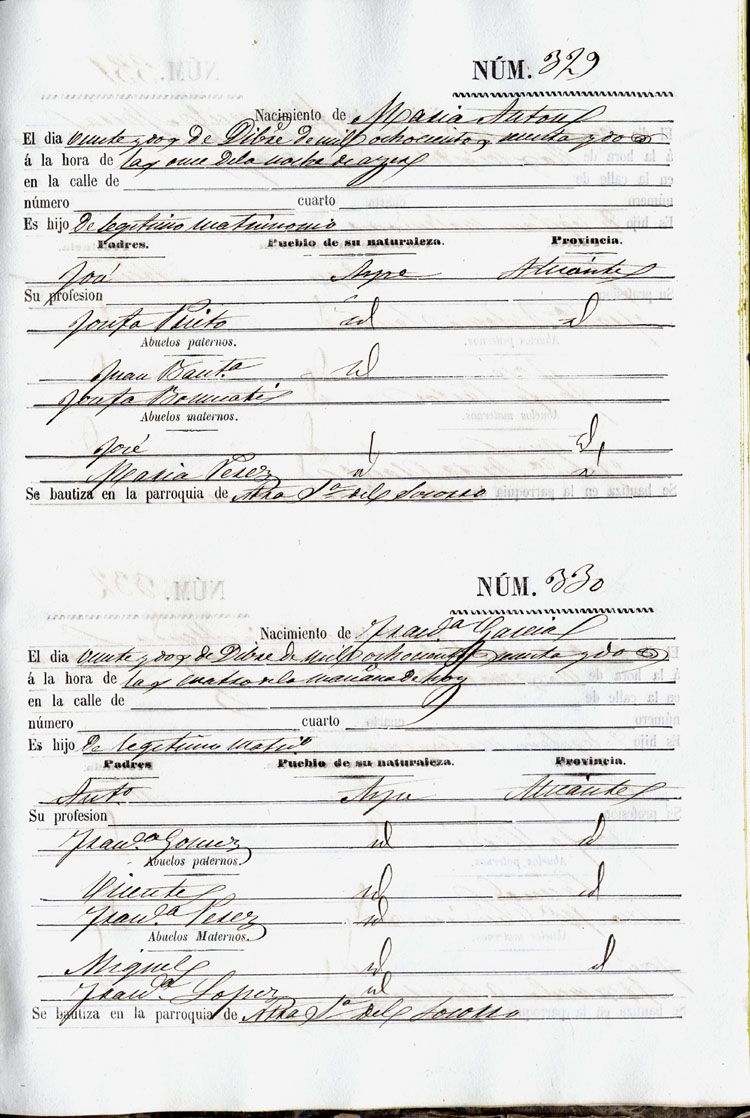 NÚM. 329
Nacimiento de Maria Anton
El dia veinte y dos de Dibre de mil ochocientos y dos
á la hora de las once de la noche de ayer
en la calle de
número cuarto
Es hijo de legitimo matrimonio
Padres. Pueblo de su naturaleza. Provincia.
José Aspe Alicante
Su profesion
Josefa Prieto id id
Abuelos paternos.
Juan Baut.ª id
Josefa
Abuelos maternos.
José id
Maria Perez id id
Se bautiza en la parroquia de Ntra Sª del Socorro
NÚM. 330
Nacimiento de Fran.ca Garcia
El dia veinte y dos de Dibre de mil ochocientos y dos
á la hora de las cuatro de la mañana de hoy
en la calle de
número cuarto
Es hijo de legitimo matrio
Padres Pueblo de su naturaleza. Provincia.
Anto Aspe Alicante
Su profesion
Fran.ca Gomez id id
Abuelos paternos.
Vicente id id
Fran.ca Perez id
Abuelos Maternos.
Miguel id id
Fran.ca Lopez id
Se bautiza en la parroquia de Ntra Sª del Socorro